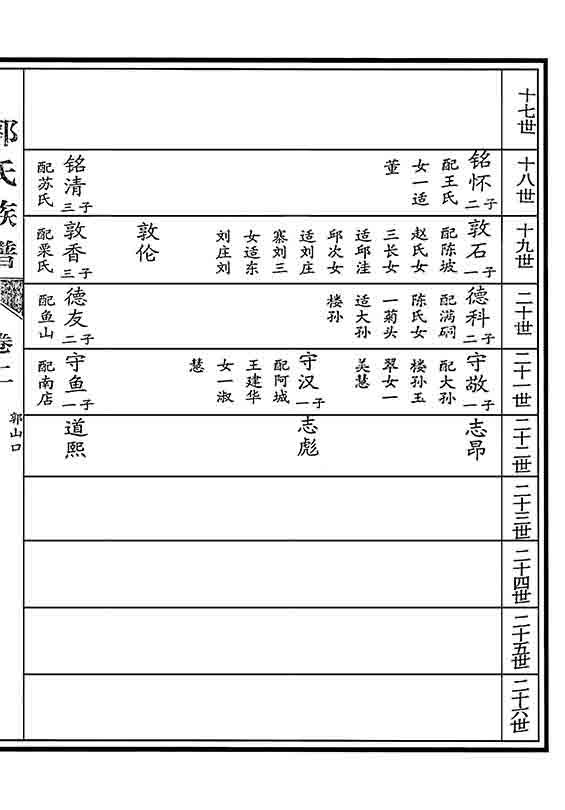 十七世
十八世
铭怀二子
配王氏
女一适
董
铭清三子
配苏氏
十九世
敦石一子
配陈坡
赵氏女
三长女
适邱洼
邱次女
适刘庄
寨刘三
女适东
刘庄刘
敦伦
敦香三子
配栗氏
二十世
德科二子
配满硐
陈氏女
一菊头
适大孙
楼孙
德友二子
配鱼山
二十一世
守敬一子
配大孙
楼孙玉
翠女一
美慧
守汉一子
配阿城
王建华
女一淑
慧
守鱼一子
配南店
二十二世
志昂
志彪
道熙
二十三世
二十四世
二十五世
二十六世
郭氏族谱
卷二
郭山口